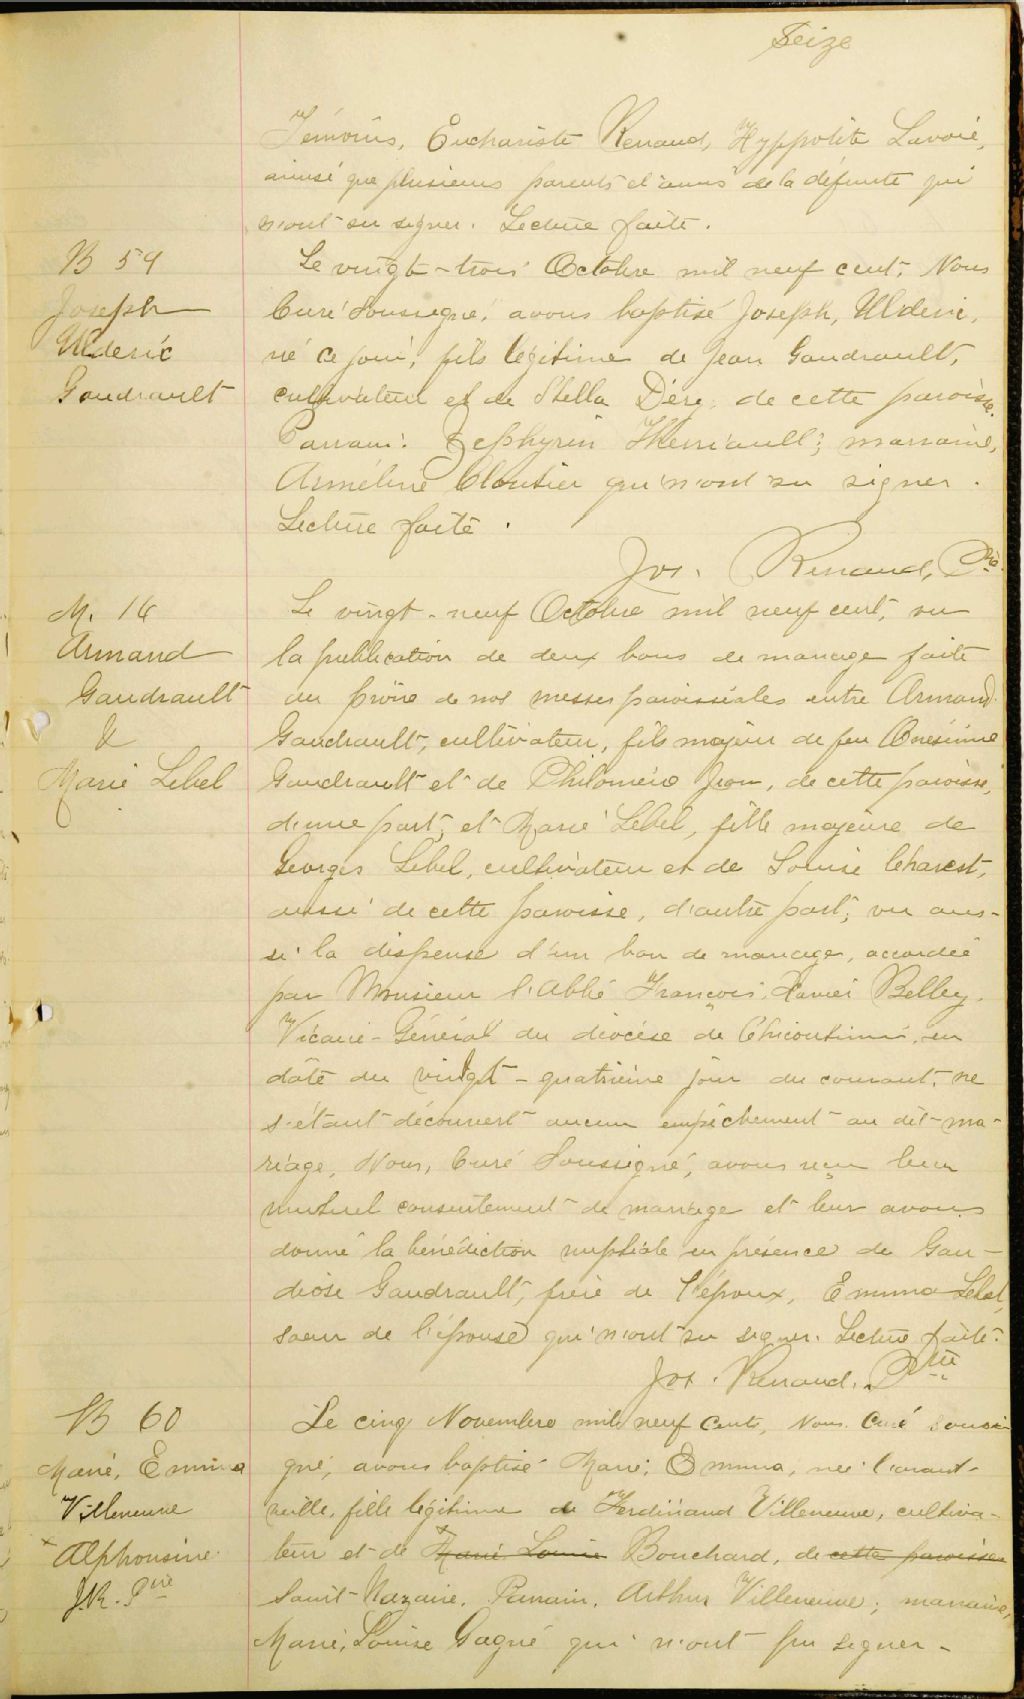 Seize
Témoins, Euchariste Renaud, Hyppolite Lavoie,
ainsi que plusieurs parents et amis de la défunte qui
n'ont su signer. Lecture faite.
B 59
Joseph
Ulderic
Gaudrault
Le vingt-trois Octobre mil neuf cent, Nous
Curé Soussigné, avons baptisé Joseph, Ulderic,
né ce jour, fils légitime de Jean Gaudrault,
cultivateur et de Stella Déry, de cette paroisse.
Parrain: Zephyrin Therriault; marraine,
Arméline Cloutier qui n'ont su signer.
Lecture faite.
Jos. Renaud, Ptre
M. 16
Armand
Gaudrault
&
Marie Lebel
Le vingt-neuf Octobre mil neuf cent, vu
la publication de deux bans de mariage faite
au prône de nos messes paroissiales entre Armand
Gaudrault, cultivateur, fils majeur de feu Onésime
Gaudrault et de Philomène Jean, de cette paroisse,
d'une part, et Marie Lebel, fille majeure de
Georges Lebel, cultivateur et de Louise Charest,
aussi de cette paroisse, d'autre part; vu aus-
si la dispense d'un ban de mariage, accordée
par Monsieur l'Abbé François Xavier Belley,
Vicaire-Général du diocèse de Chicoutimi, en
date du vingt-quatrième jour du courant, ne
s'étant découvert aucun empêchement au dit ma-
riage, Nous, Curé Soussigné, avons reçu leur
mutuel consentement de mariage et leur avons
donné la bénédiction nuptiale en présence de Gau-
diose Gaudrault, frère de l'époux, Emma Lebel,
soeur de l'épouse qui n'ont su signer. Lecture faite.
Jos. Renaud, Ptre
B 60
Marie, Emma
Villeneuve
x Alphonsine
J.R. Ptre
Le cinq Novembre mil neuf cent, Nous Curé soussi-
gné, avons baptisé Marie, Emma, née l'avant-
veille, fille légitime de Ferdinand Villeneuve, cultiva-
teur et de x Marie Louise Bouchard, de cette paroisse
Saint-Nazaire. Parrain, Arthur Villeneuve; marraine,
Marie, Louise Gagné qui n'ont pu signer -